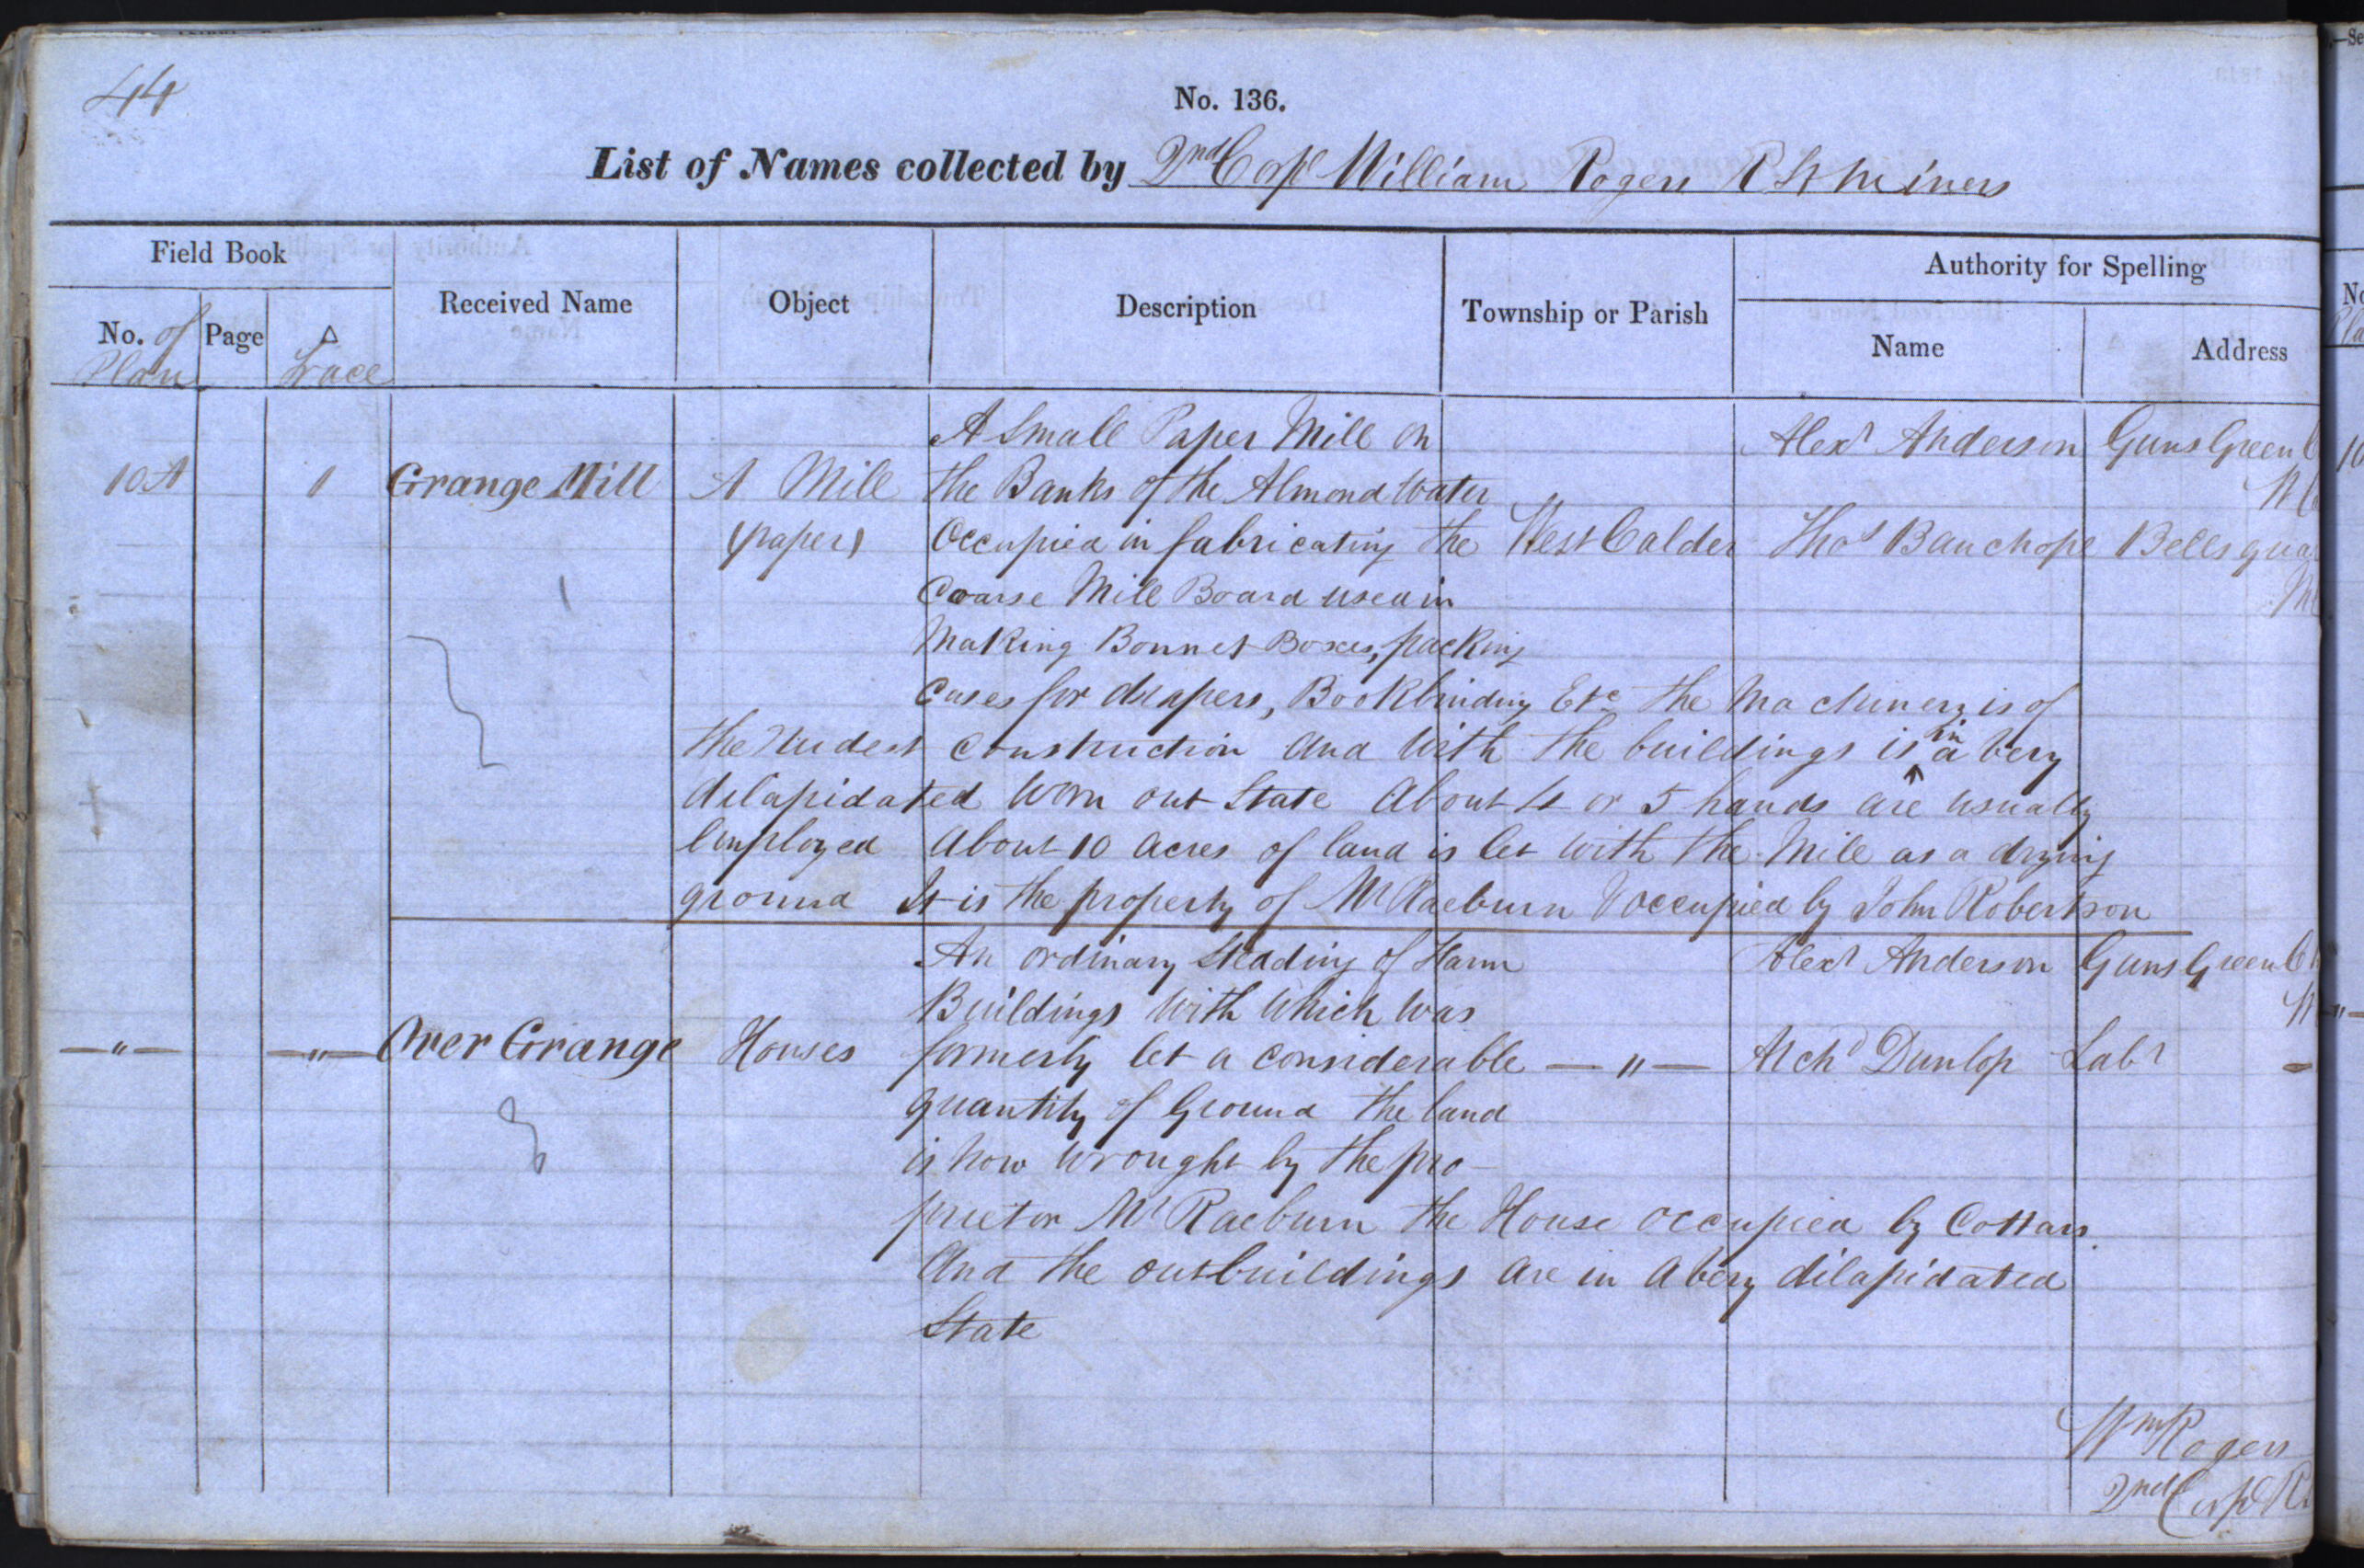 44
No. 136.
List of Names collected by 2nd Corpl William Rogers R S & Miners
Field Book
Received Name
Object
Description
Township or Parish
Authority for Spelling
No. of Plan
Page
Δ Trace
Name
Address
10A 1 Grange Mill A Mill (paper)
A Small Paper Mill on
the Banks of the Almond Water
Occupied in fabricating the
Coarse Mill Board used in
Making Bonnet Boxes, packing
Cases for drapers, Bookbinding Etc the Machinery is of
the rudest construction and with the buildings is in a very
dilapidated worn out state About 4 or 5 hands are usually
employed About 10 acres of land is let with the Mill as a drying
ground It is the property of Mr Raeburn & occupied by John Robertson
West Calder
Alexr Anderson Guns Green
Thos Bauchope Bells
—"— —"— Over Grange Houses
An ordinary Steading of Farm
Buildings with which was
formerly let a considerable
quantity of Ground the land
is now wrought by the pro-
prietor Mr Raeburn the House occupied by Cottars
And the outbuildings are in a very dilapidated
State
—"—
Alexr Anderson Guns Green
Archd Dunlop Labr
Wm Rogers
2nd Corpl